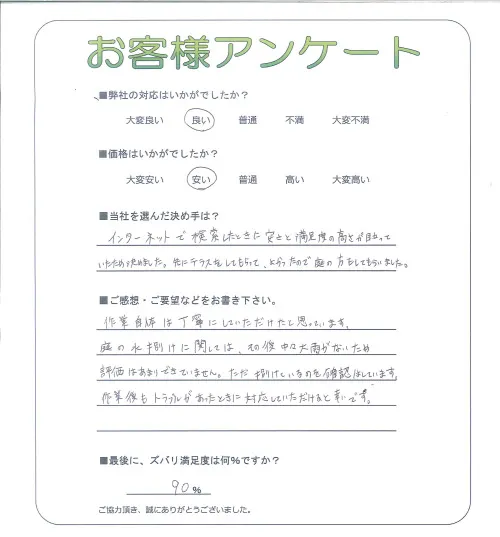 お客様アンケート
■弊社の対応はいかがでしたか？
大変良い 良い 普通 不満 大変不満
■価格はいかがでしたか？
大変安い 安い 普通 高い 大変高い
■当社を選んだ決め手は？
インターネットで検索したときに安さと満足度の高さが目立って
いたため決めました。先にテラスをしてもらって、よかったので庭の方もしてもらいました。
■ご感想・ご要望などをお書き下さい。
作業自体は丁寧にしていただけたと思っています。
庭の水捌けに関しては、その後中々大雨がないため
評価はあまりできていません。ただ捌けているのを確認はしています。
作業後もトラブルがあったときに対応していただけると幸いです。
■最後に、ズバリ満足度は何％ですか？
90％
ご協力頂き、誠にありがとうございました。